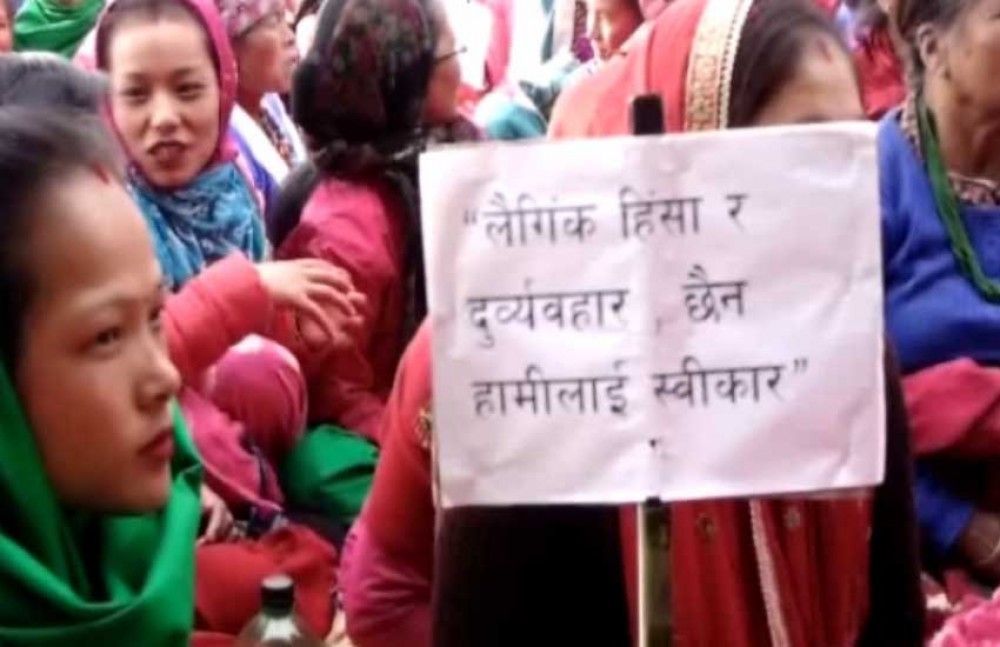 “लैगिंक हिंसा र
दुर्व्यवहार , छैन
हामीलाई स्वीकार”